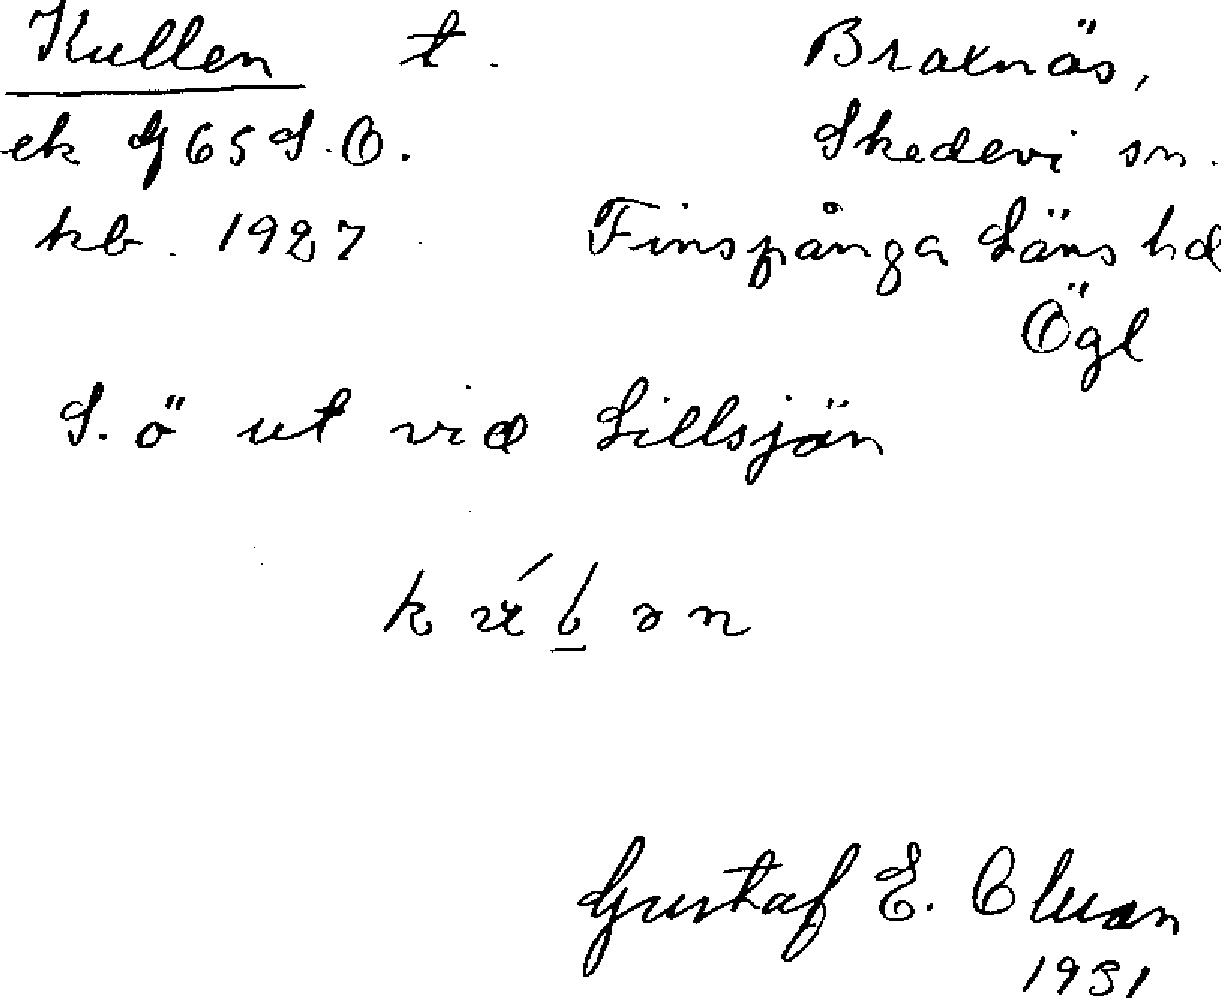 Kullen t. Braxnäs,
ek G65 S.O. Skedevi sn.
kb. 1927 Finspånga Läns hd
Ögl
S.ö ut vid Lillsjön
Gustaf E.
1931